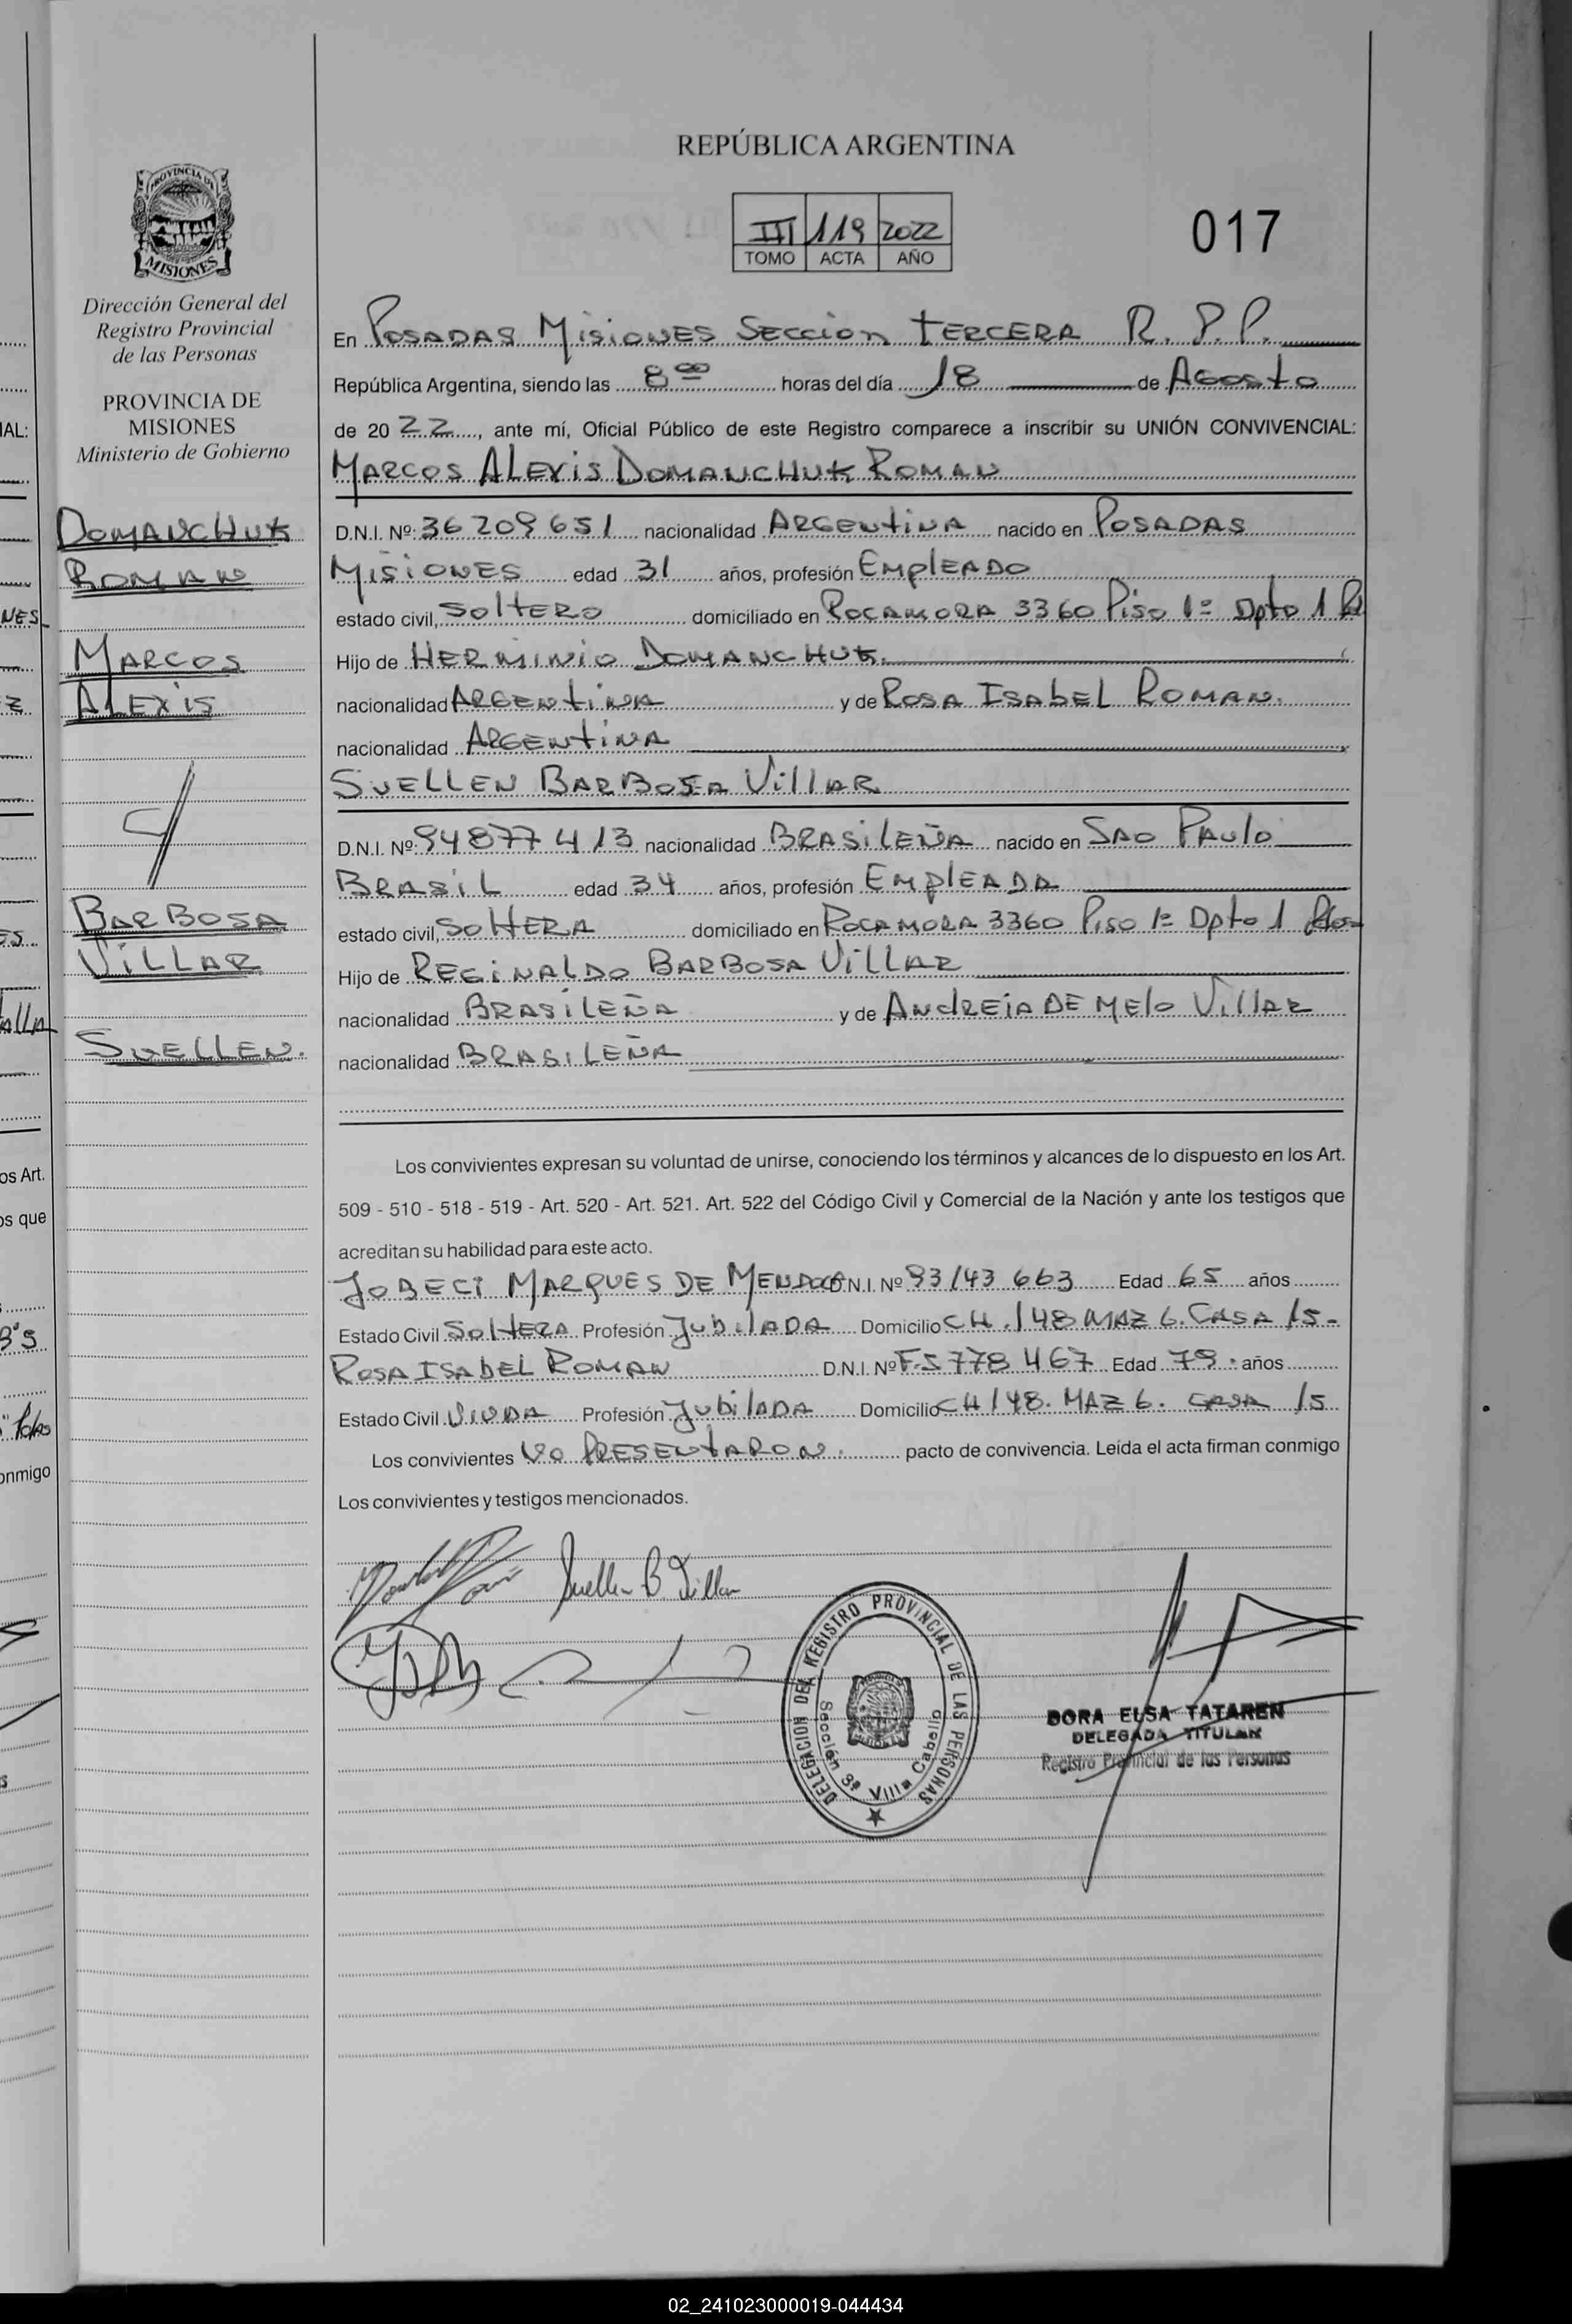 REPÚBLICA ARGENTINA
III 119 2022
TOMO ACTA AÑO
017
PROVINCIA DE
MISIONES
Dirección General del
Registro Provincial
de las Personas
PROVINCIA DE
MISIONES
Ministerio de Gobierno
DOMANCHUK
ROMAN
MARCOS
ALEXIS
Y
BARBOSA
VILLAR
SUELLEN.
En POSADAS MISIONES SECCION TERCERA R.P.P.
República Argentina, siendo las 8 00 horas del día 18 de AGOSTO
de 20 22, ante mí, Oficial Público de este Registro comparece a inscribir su UNIÓN CONVIVENCIAL:
MARCOS ALEXIS DOMANCHUK ROMAN
D.N.I. Nº: 36209651 nacionalidad ARGENTINA nacido en POSADAS
MISIONES edad 31 años, profesión EMPLEADO
estado civil, SOLTERO domiciliado en ROCAMORA 3360 PISO 1º DPTO 1
Hijo de HERMINIO DOMANCHUK.
nacionalidad ARGENTINA y de ROSA ISABEL ROMAN.
nacionalidad ARGENTINA
SUELLEN BARBOSA VILLAR
D.N.I. Nº: 94877413 nacionalidad BRASILEÑA nacido en SAO PAULO
BRASIL edad 34 años, profesión EMPLEADA
estado civil, SOLTERA domiciliado en ROCAMORA 3360 PISO 1º DPTO 1
Hijo de REGINALDO BARBOSA VILLAR
nacionalidad BRASILEÑA y de ANDREIA DE MELO VILLAR
nacionalidad BRASILEÑA
Los convivientes expresan su voluntad de unirse, conociendo los términos y alcances de lo dispuesto en los Art.
509 - 510 - 518 - 519 - Art. 520 - Art. 521. Art. 522 del Código Civil y Comercial de la Nación y ante los testigos que
acreditan su habilidad para este acto.
JOBECI MARQUES DE D.N.I. Nº 93143663 Edad 65 años
Estado Civil SOLTERA Profesión JUBILADA Domicilio CH. 148 MAZ 6. CASA 15-
ROSA ISABEL ROMAN D.N.I. Nº F.5778467 Edad 79. años
Estado Civil VIUDA Profesión JUBILADA Domicilio CH 148. MAZ 6. CASA 15
Los convivientes NO PRESENTARON. pacto de convivencia. Leída el acta firman conmigo
Los convivientes y testigos mencionados.
Suellen B. Villar
DELEGACION DEL REGISTRO PROVINCIAL DE LAS PERSONAS
Sección 3ª Villa Cabello
DORA ELSA TATAREN
DELEGADA TITULAR
Registro Provincial de las Personas
02_241023000019-044434